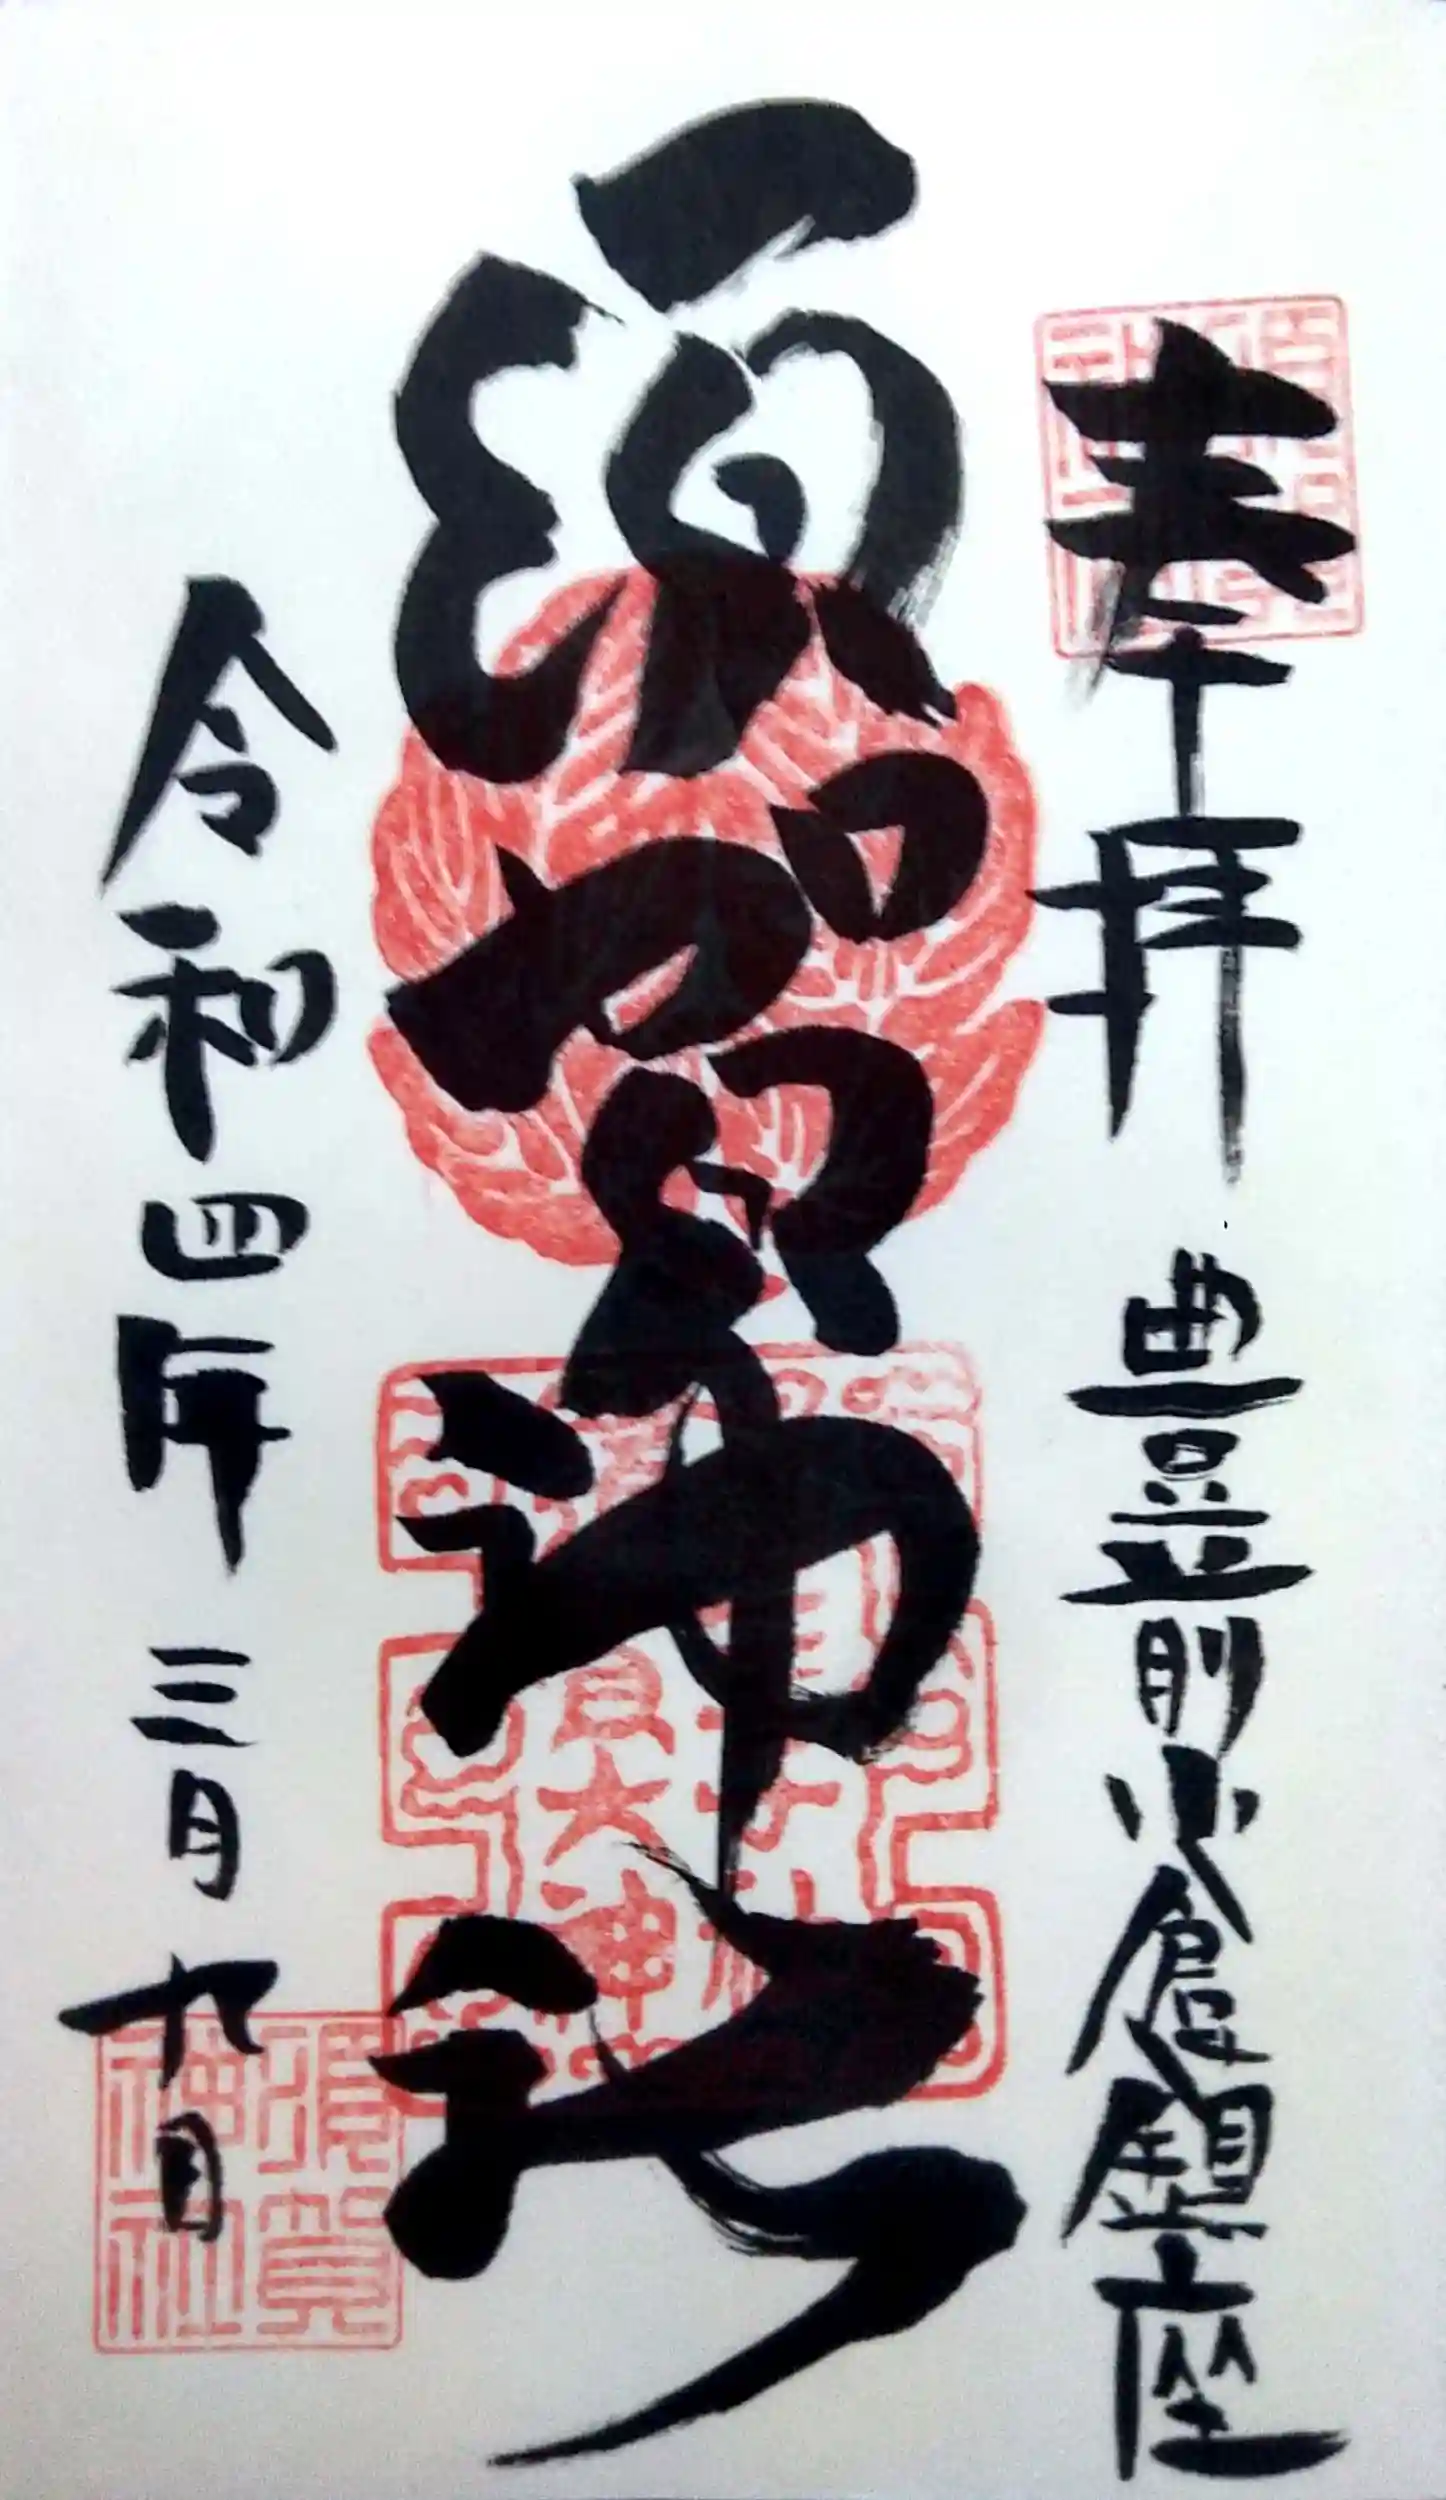 奉拝 豊前小倉鎮座
須賀神社
令和四年三月九日
須賀
神社